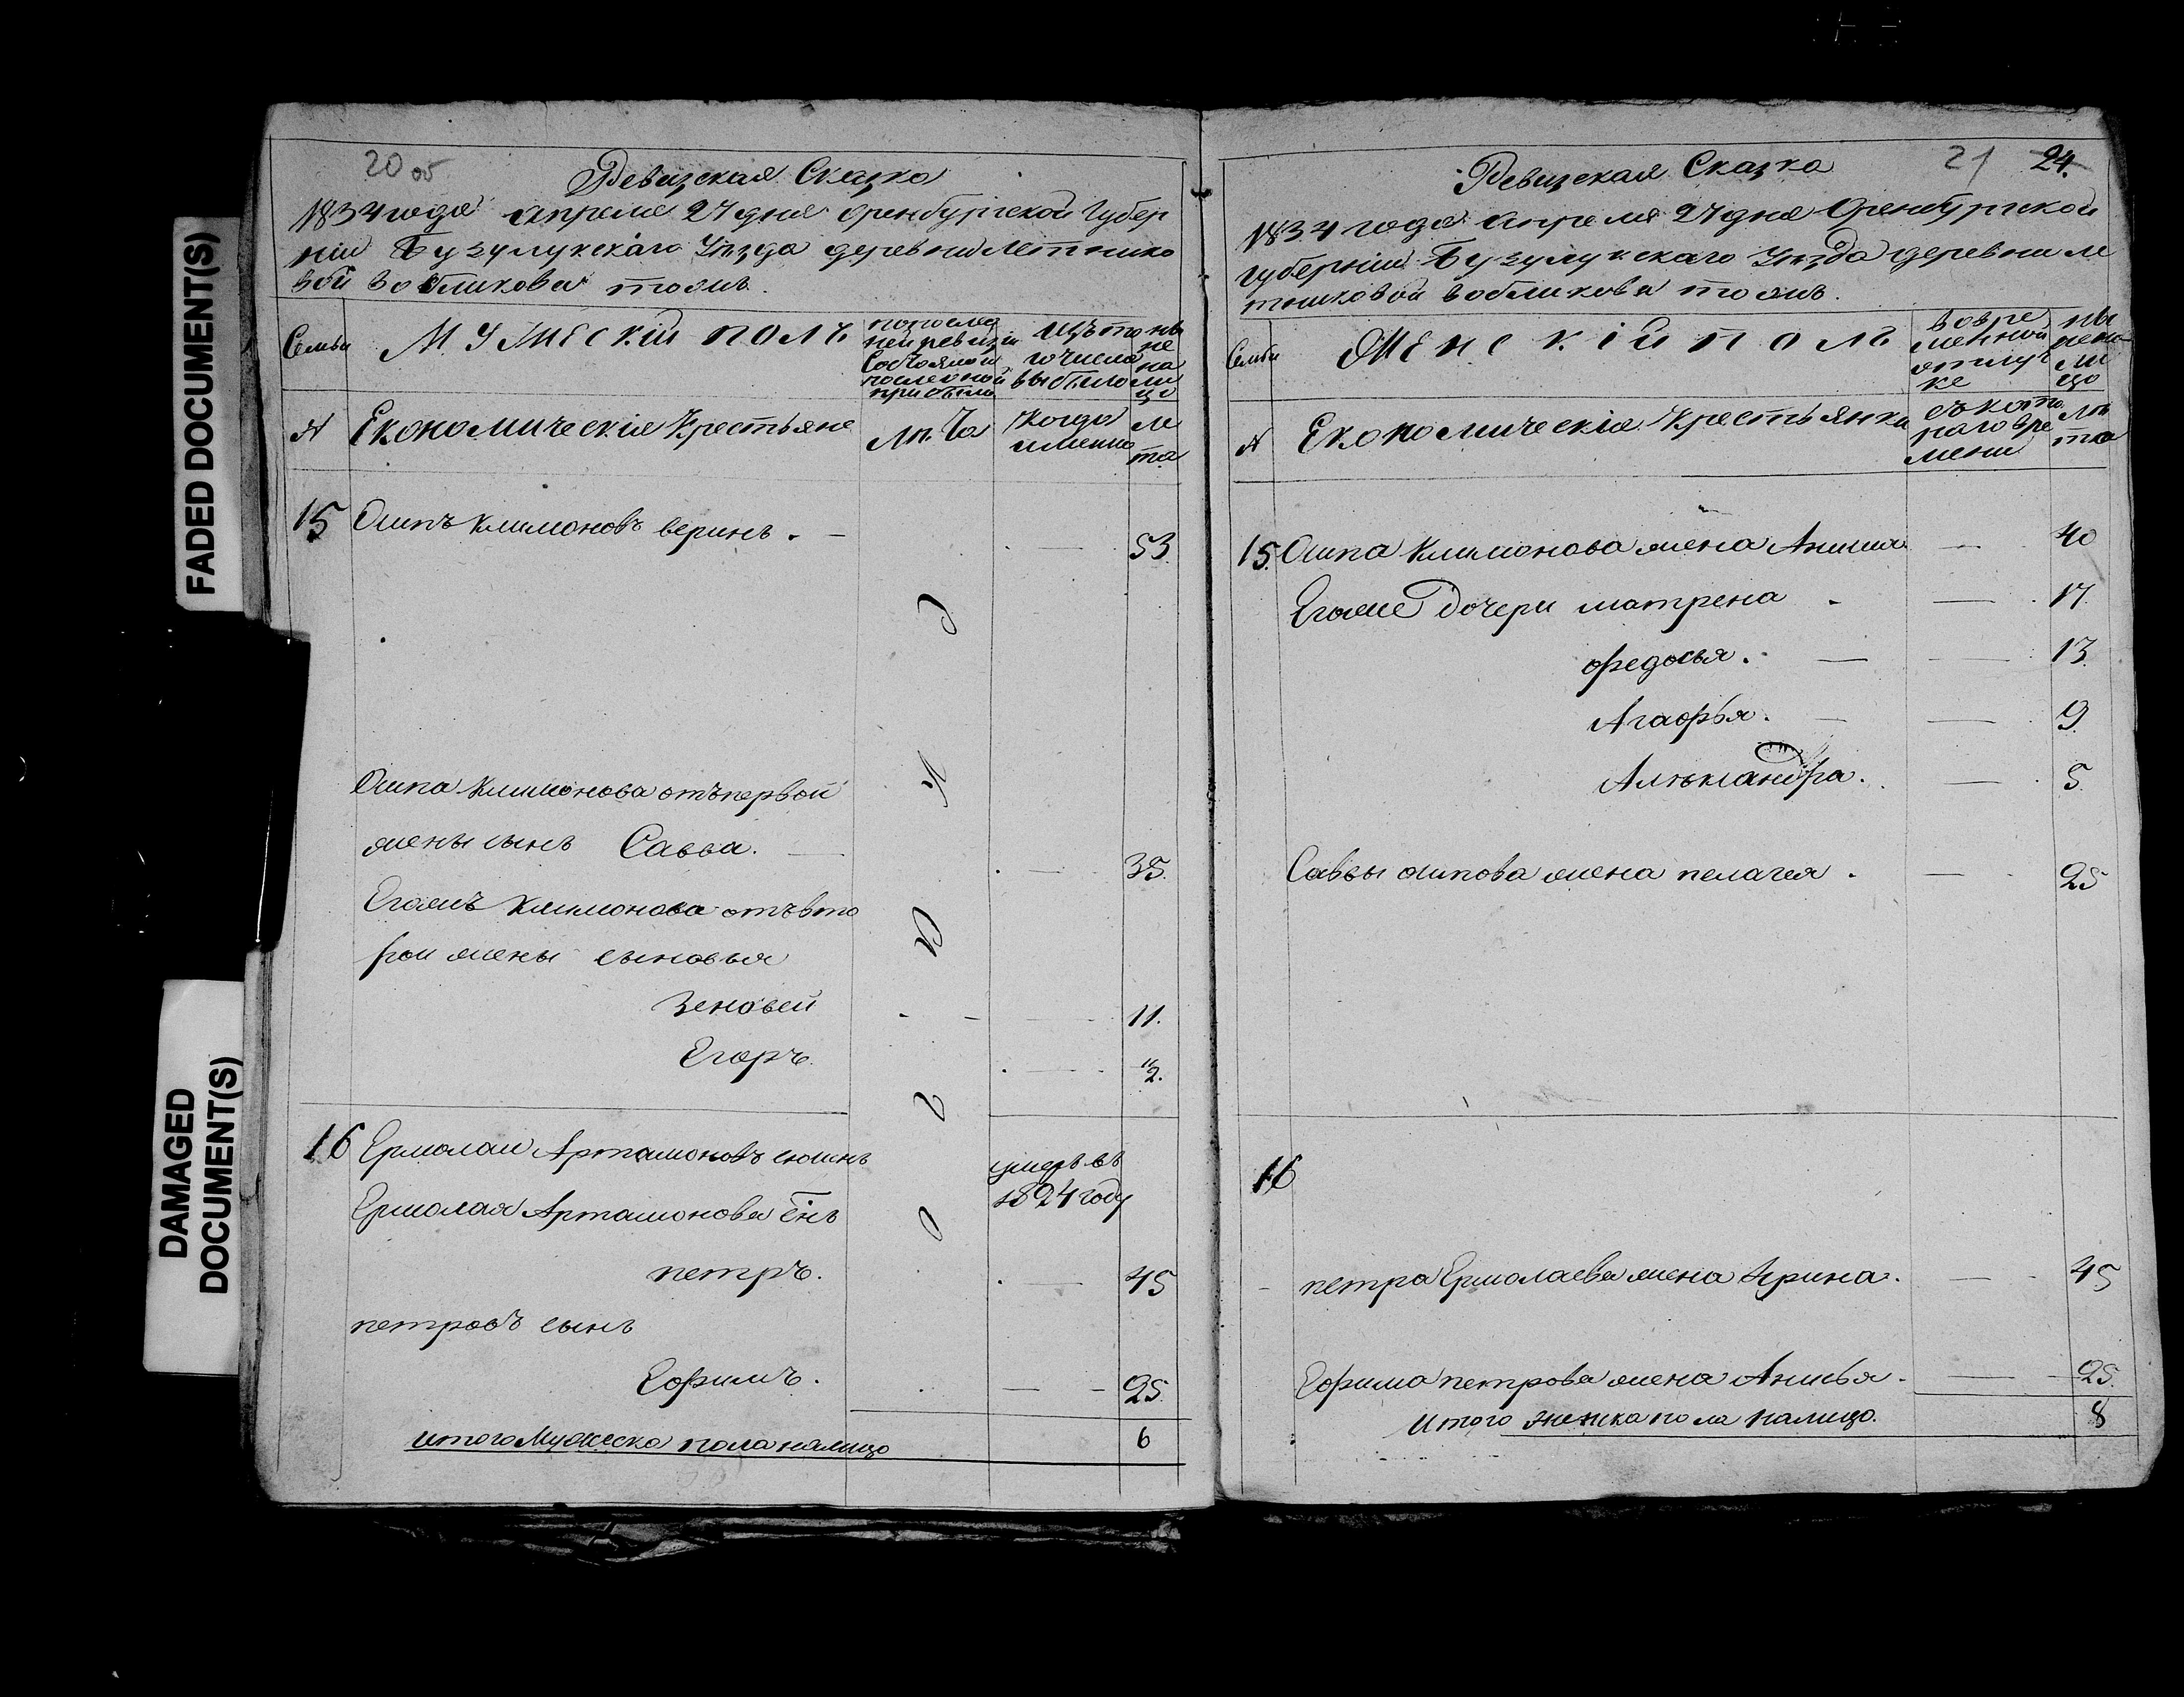 FADED DOCUMENT(S)
DAMAGED
DOCUMENT(S)
20 об
Ревизская Сказка
1834 года апреля 27 дня Оренбургской Губер
нiи Бузулукскаго Уѣзда деревни Летнико
вой Вобликова тожъ.
Семьи
МУЖЕСКIЙ ПОЛЪ
по послед
ней ревизiи
Состояло и
после оной
прибыло
изъ то
го числа
выбыло
ны
не
на
ли
цо
N
Економическiе Крестьяне
Лѣта
Когда
имянно
ле
та
15 Осипъ Климоновъ Веринъ. 53
Осипа Климонова отъ первой
жены сынъ Савва. 35.
Егожъ Климонова отъ вто
рои жены сыновья
Зеновей 11.
Егоръ. 1/2.
16 Ермолаи Артамоновъ умеръ въ
1824 году
Ермолая Артамонова снъ
петръ. 45
петровъ сынъ
Ефимъ. 25.
итого Мужеска пола налицо 6
Ревизская Сказка
21 24.
1834 года апреля 27 дня Оренбургской
губернiи Бузулукскаго Уѣзда деревни Ле
тниковой Вобликова тожъ.
Семьи
ЖЕНСКIЙ ПОЛЪ
Во вре
менной
отлуч
ке
ны
не на
ли
цо
N
Економическiе Крестьянки
съ кото
раго вре
мени
Лѣ
та
15. Осипа Климонова жена Анисья 40
Егоже Дочери матрена 17.
Федосья. 13.
Агафья. 9.
Алѣксандра. 5.
Саввы осипова жена пелагея. 25
16
петра Ермолаева жена Ирина. 45
Ефима петрова жена Анисья. 25.
Итого женска пола налицо. 8